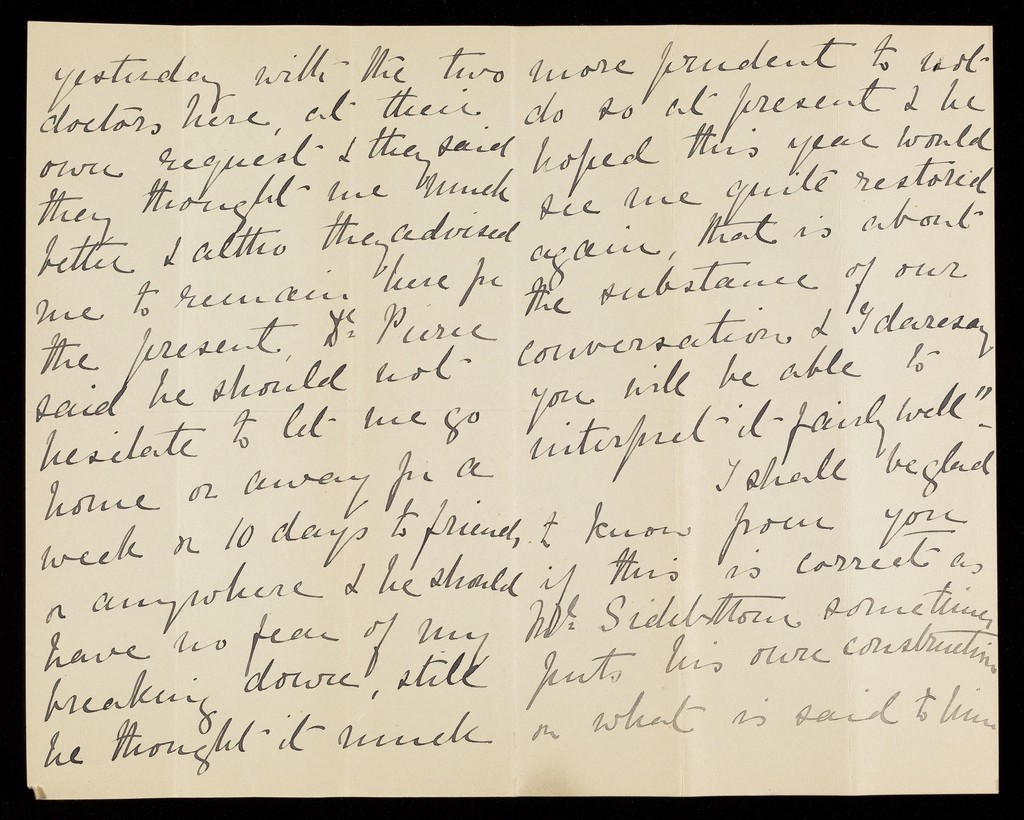 yesterday with the two
doctors here, at their
own request & they said
they thought me much
better & altho they advised
me to remain here for
the present, Dr. Pierce
said he should not
hesitate to let me go
home or away for a
week or 10 days to friends,
or anywhere & he should
have no fear of my
breaking down, still
he thought it much
more prudent to not
do so at present & he
hoped this year would
see me quite restored
again, that is about
the substance of our
conversation & I daresay
you will be able to
interpret it fairly well"_
I shall be glad
to know from you
if this is correct as
Mr. Sidebottom sometimes
puts his own construction
on what is said to him